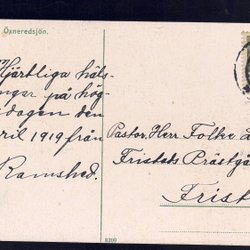 Öxneredsjön.
Hjärtliga häls-
ngar på hög
dagen den
ril 1919 från
Ramshed.
Pastor, Herr Folke L
Fristads Prästgå
Frist